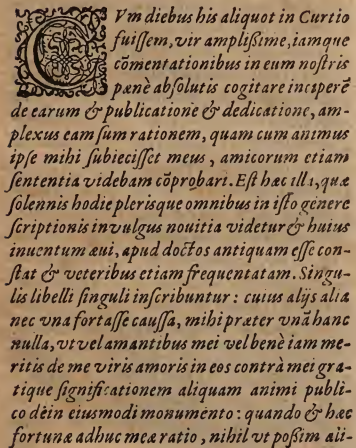 CVm diebus his aliquot in Curtio
fuiſſem, vir ampliſsime, iamque
cōmentationibus in eum noſtris
pænè abſolutis cogitare inciperē
de earum & publicatione & dedicatione, am-
plexus eam ſum rationem, quam cum animus
ipſe mihi ſubieciſſet meus, amicorum etiam
ſententia videbam cōprobari. Eſt hæc illa, quæ
ſolennis hodie plerisque omnibus in iſto genere
ſcriptionis in vulgus nouitia videtur & huius
inuentum æui, apud doctos antiquam eſſe con-
ſtat & veteribus etiam frequentatam. Singu-
lis libelli ſinguli inſcribuntur: cuius alijs alia
nec vna fortaſſe cauſſa, mihi præter vnā hanc
nulla, vt vel amantibus mei vel benè iam me-
ritis de me viris amoris in eos contrà mei gra-
tique ſignificationem aliquam animi publi-
co dein eiusmodi monumento: quando & hæc
fortunæ adhuc meæ ratio, nihil vt poſsim ali-